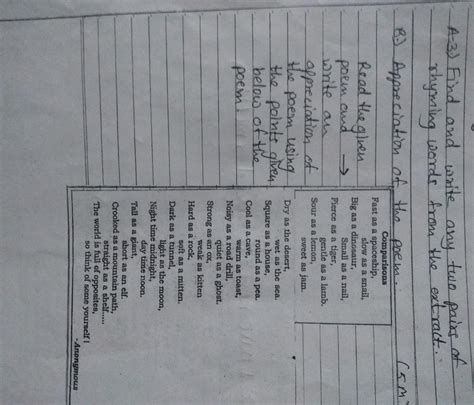 A-3) Find and write any two pairs of
rhyming words from the extract.
B.) Appreciation of the poem. (5 M
Read the given
poem and →
write an
appreciation of
the poem using
the points given
below of the
poem.
Comparisons
Fast as a spaceship,
slow as a snail,
Big as a dinosaur,
Small as a nail,
Fierce as a tiger,
gentle as a lamb.
Sour as a lemon
sweet as jam.
Dry as the desert,
wet as the sea.
Square as a house,
round as a pea.
Cool as a cave,
warm as toast,
Noisy as a road drill,
quiet as a ghost.
Strong as an ox,
weak as kitten
Hard as a rock,
soft as a mitten.
Dark as a turn,
light as the moon,
Night time midnight,
day time noon.
Tall as a giant,
short as an elf.
Crooked as mountain path,
straight as a shelf.....
The world is full of opposites,
so think of some yourself !
-Anonymous